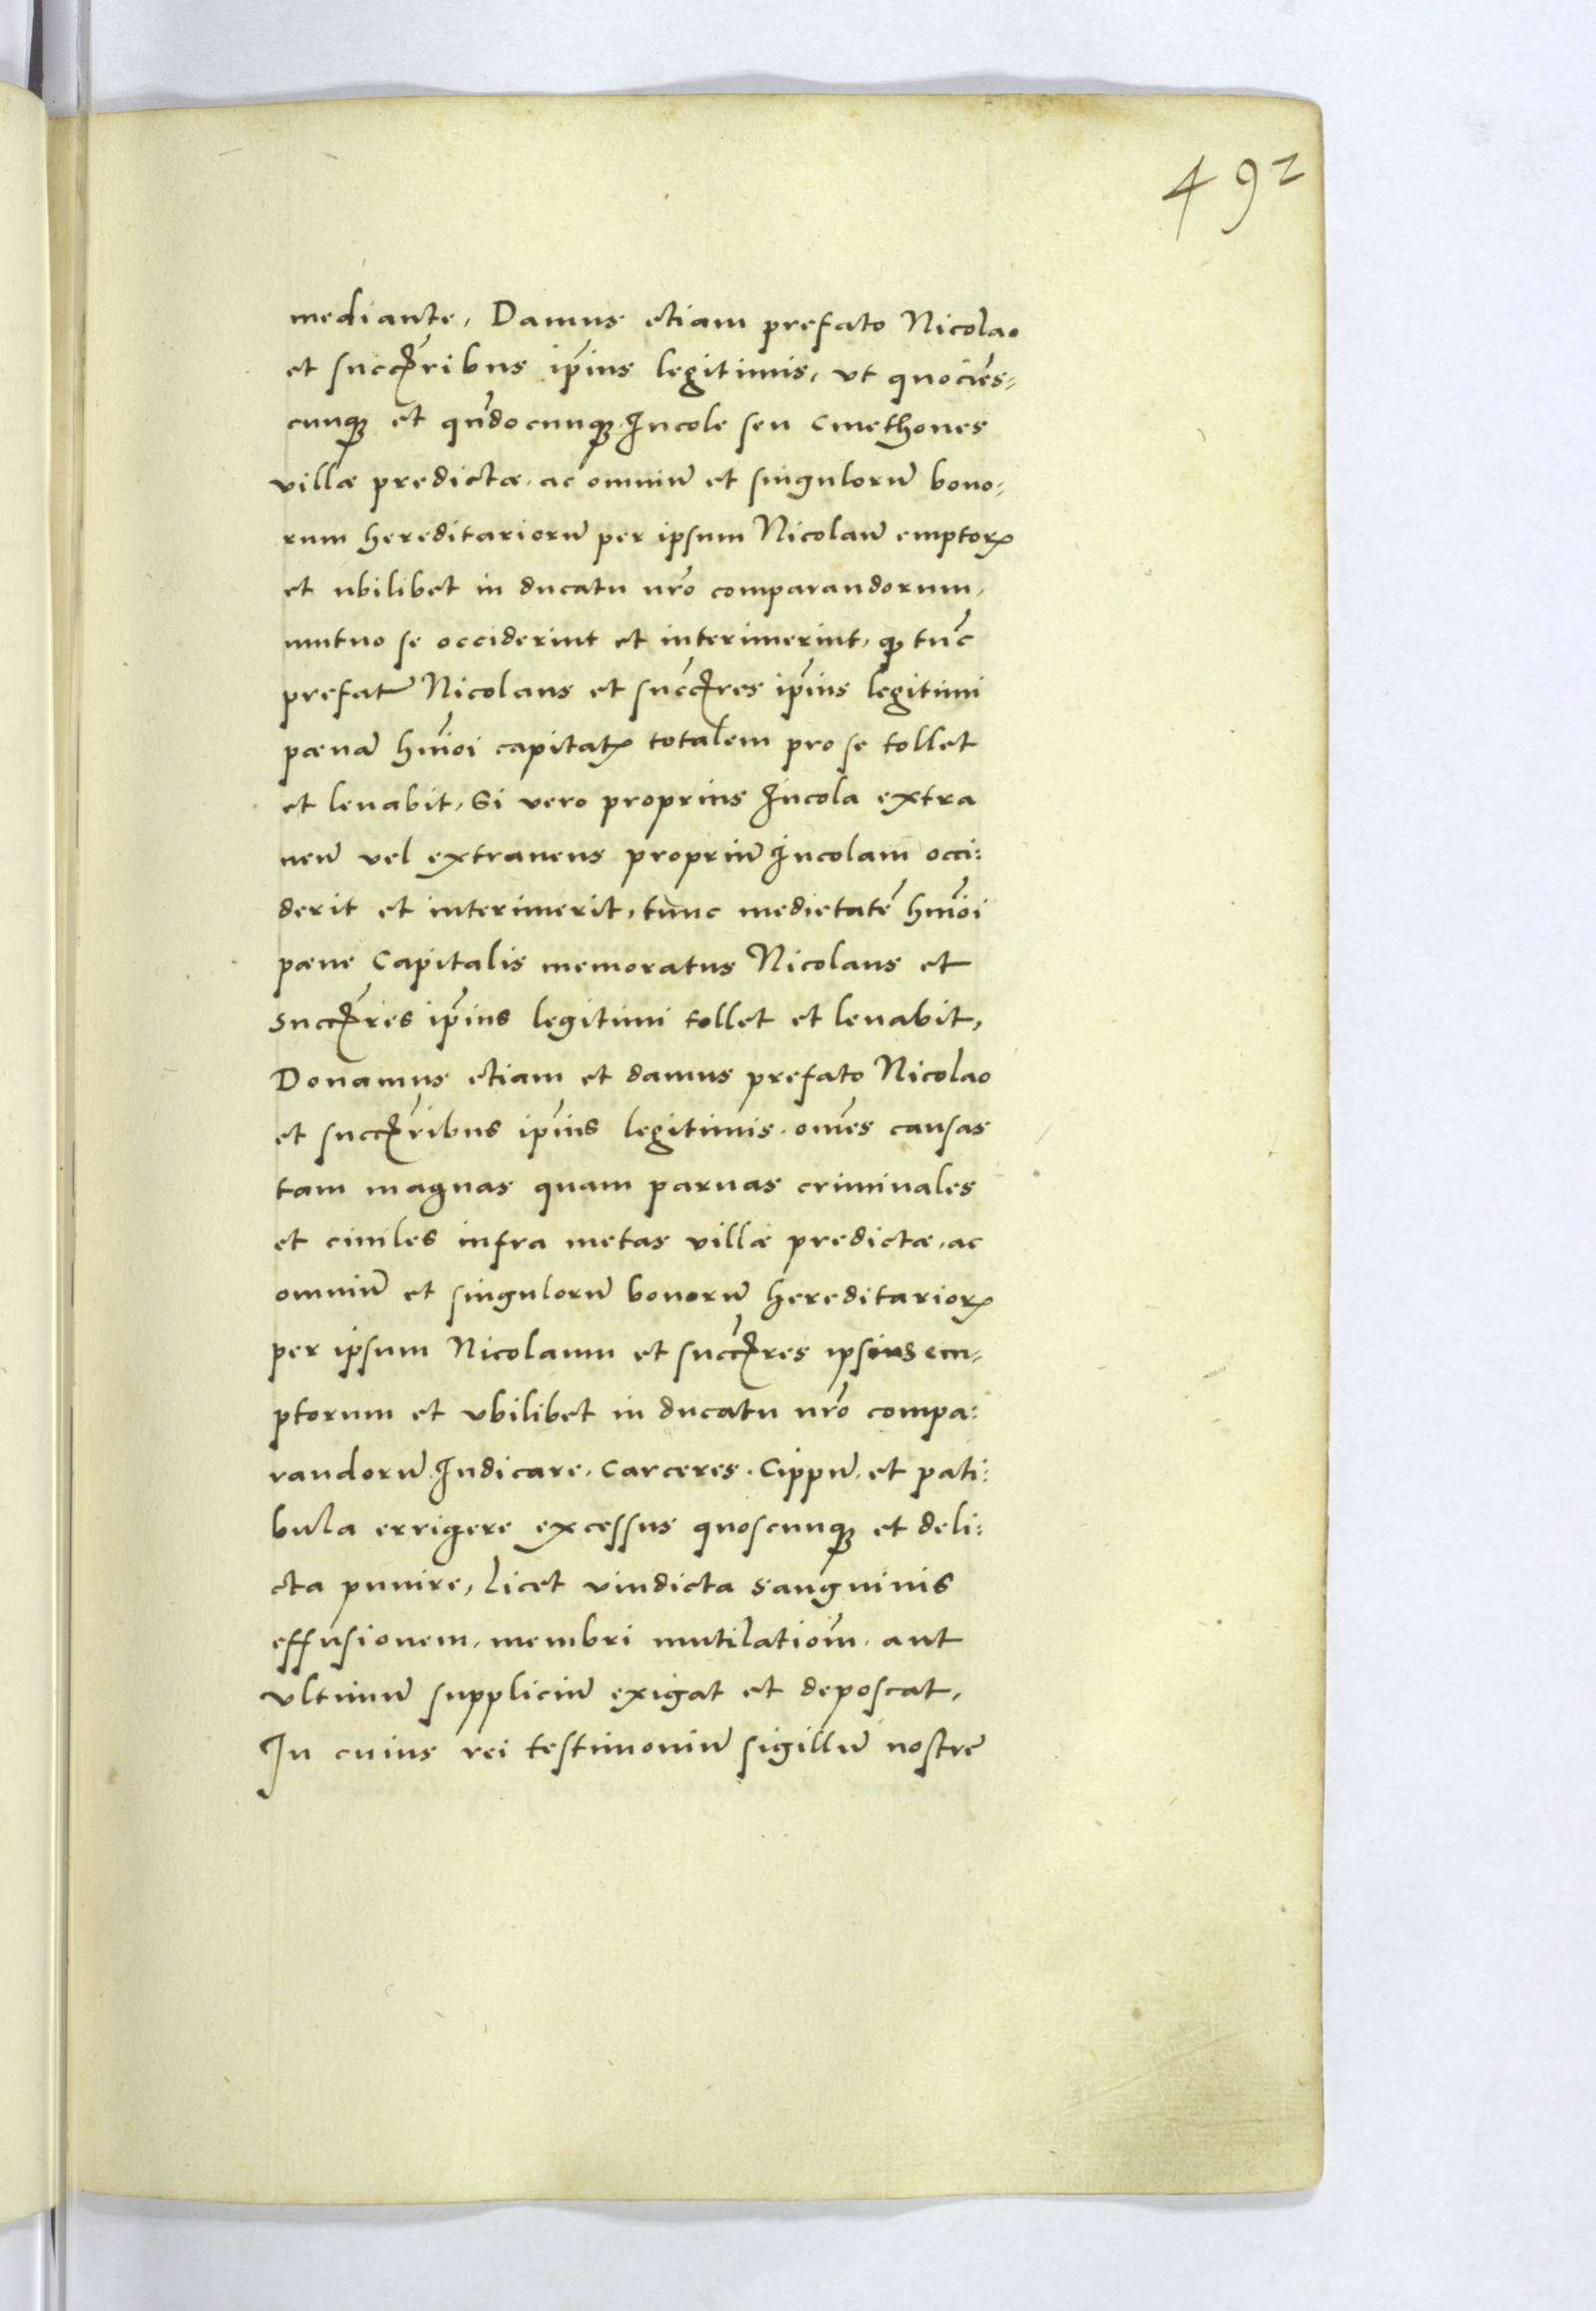 492
mediante, Damus etiam prefato Nicolao
et succꝭribus ip̄ius legitimis, vt quocień̄s-
cunqꝫ et qn̄docunqꝫ Incole seu Cmethones
villæ predictæ, ac omniū et singulorū bono-
rum hereditariorū per ipsum Nicolaū emptoꝝ
et ubilibet in ducatu nr̄o comparandorum,
mutuo se occiderint et interimerint, qꝫ tūc
prefatꝰ Nicolaus et succꝭres ip̄ius legitimi
pœnā hm̄oi capitalꝭ totalem pro se tollet
et leuabit, Si vero proprius Incola extra
neū vel extraneus propriū Incolam occi:
derit et interimerit, tunc medietatē hm̄oi
pœne Capitalis memoratus Nicolaus et
succꝭres ip̄ius legitimi tollet et leuabit,
Donamus etiam et damus prefato Nicolao
et succꝭribus ip̄ius legitimis, om̄es causas
tam magnas quam paruas criminales
et ciuiles infra metas villæ predictæ, ac
omniū et singulorū bonorū hereditarioꝝ
per ipsum Nicolaum et succꝭres ipsius em-
ptorum et vbilibet in ducatu nr̄o compa:
randorū Iudicare, Carceres, Cippū, et pati:
bula errigere excessus quoscunqꝫ et deli:
cta punire, licet vindicta sanguinis
effusionem, membri mutilatiom̄, aut
vltimū suppliciū exigat et deposcat,
In cuius rei testimoniū sigillū nostrū